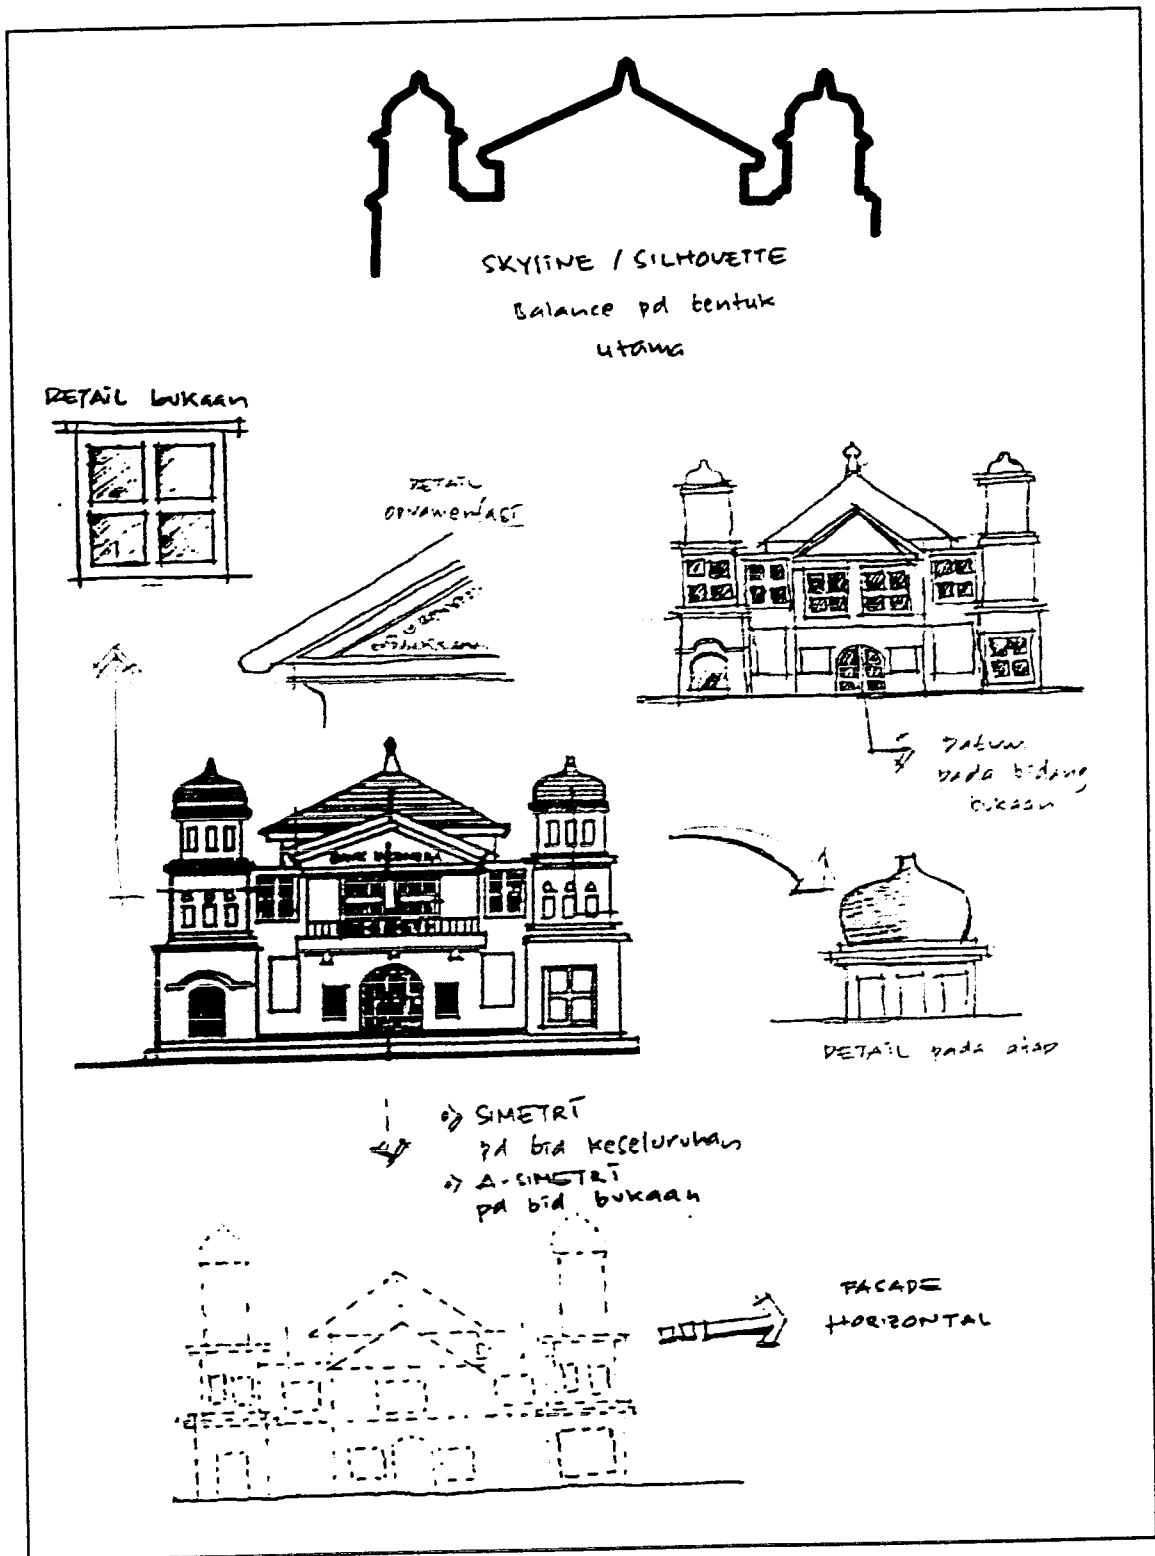 SKYLINE / SILHOUETTE
Balance pd bentuk
utama
DETAIL bukaan
DETAIL
ornamentasi
Datum
pada bidang
bukaan
DETAIL pada atap
SIMETRI
pd bid keseluruhan
A-SIMETRI
pd bid bukaan
FASADE
HORIZONTAL